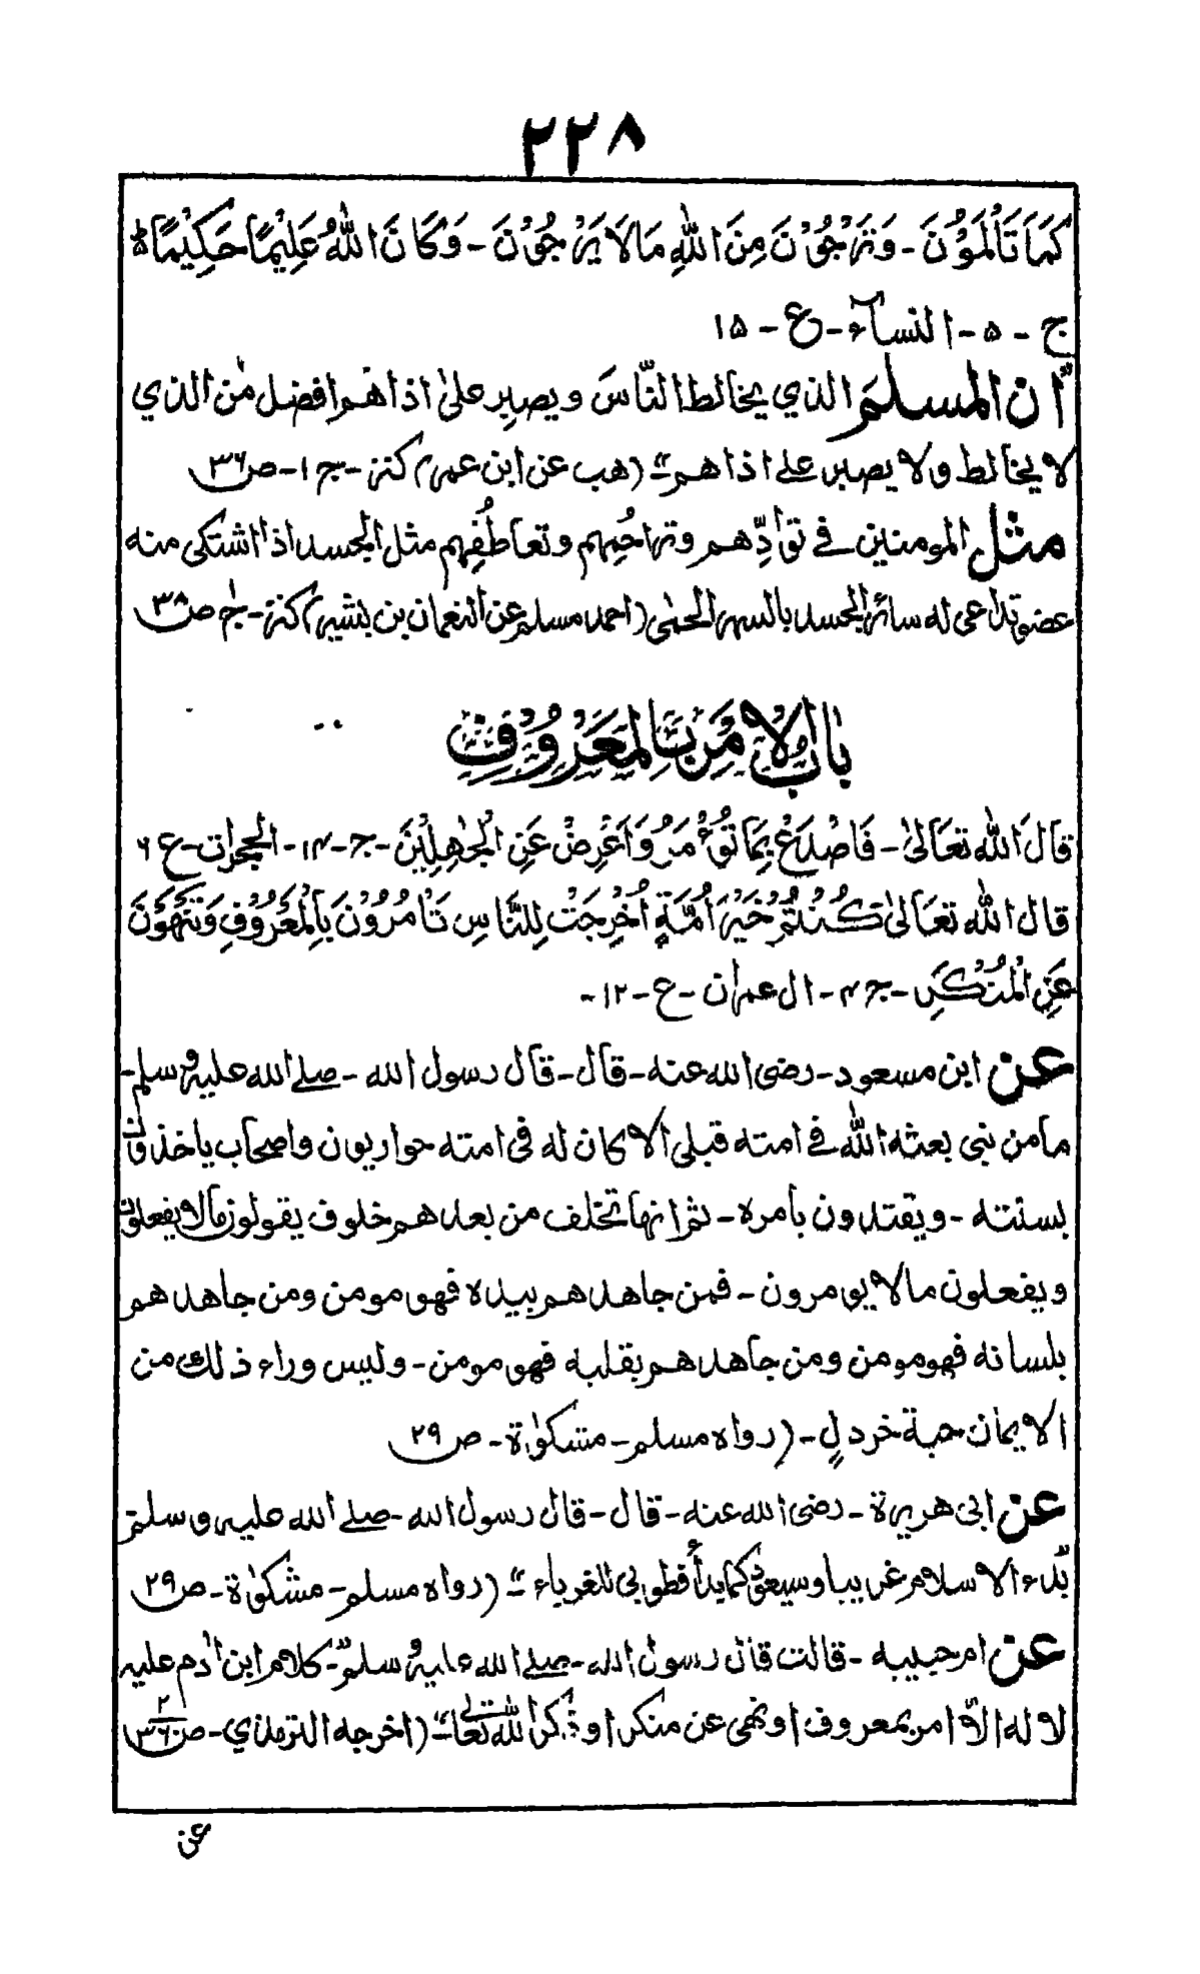 ۲۲۸
كَمَا تَأْلَمُوْنَ - وَتَرْجُوْنَ مِنَ اللّٰهِ مَا لَا يَرْجُوْنَ - وَكَانَ اللّٰهُ عَلِيْمًا حَكِيْمًا
ج - ۵ - النسآء - ع - ۱۵
اِنّ المسلم الذي يخالط النّاسَ ويصبر علىٰ اذاهم افضل من الذي
لا يخالط ولا يصبر على اذاهم" (هب عن ابن عمر) كنز - ج ۱ - ص ۳۶
مثل المومنين في توادِّهم وتراحُمِهم وتعاطُفِهم مثل الجسد اذا اشتكى منه
عضو تداعى له سائر الجسد بالسهر الحمٰى (احمد مسلم عن النعمان بن بشير) كنز - ج۱ ص ۳۸
بابُ الاَمْرِ بِالْمَعْرُوْفِ
قَالَ اللّٰه تعَالىٰ - فَاصْدَعْ بِمَا تُؤْمَرُ وَاَعْرِضْ عَنِ الْجٰهِلِيْنَ - ج - ۱۴ - الحجرات - ع ۶
قال اللّٰه تعَالىٰ كُنْتُمْ خَيْرَ اُمَّةٍ اُخْرِجَتْ لِلنَّاسِ تَاْمُرُوْنَ بِالْمَعْرُوْفِ وَتَنْهَوْنَ
عَنِ الْمُنْكَرِ - ج ۴ - ال عمران - ع - ۱۲ -
عن ابن مسعود - رضى الله عنه - قال - قال رسول الله - صلے الله عليه وسلم -
مامن نبى بعثه اللّٰه في امته قبلى الا كان له فى امته حواريون واصحاب ياخذون
بسنته - ويقتدون بامره - ثم انها تخلف من بعدهم خلوف يقولون مالا يفعلون
ويفعلون مالا يومرون - فمن جاهدهم بيده فهو مومن ومن جاهدهم
بلسانه فهو مومن ومن جاهدهم بقلبه فهو مومن - وليس وراء ذلك من
الايمان حبة خردلٍ - (رواه مسلم - مشكوٰة - ص ۲۹
عن ابى هريرة - رضى الله عنه - قال - قال رسول الله - صلے الله عليه وسلم
بدء الاسلام غريبا وسيعود كما بدأ فطوبى للغرباء" (رواه مسلم - مشكوٰة - ص ۲۹
عن ام حبيبه - قالت قال رسول الله - صلے الله عليه وسلم - كلام ابن اٰدم عليه
لا له الا امر بمعروف او نهى عن منكر او ذكر اللّٰه تعالىٰ" (اخرجه الترمذي - ص ۳۶۰/۲
عن